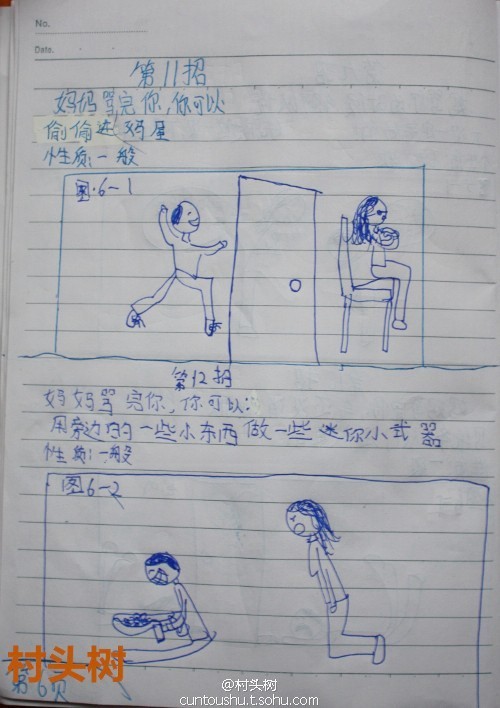 No.
Date.
第11招
妈妈骂完你,你可以:
偷偷进妈屋
性质:一般
图·6-1
第12招
妈妈骂完你,你可以:
用旁边的一些小东西做一些迷你小武器
性质:一般
图6-2
村头树
第6页
@村头树
cuntoushu.t.sohu.com